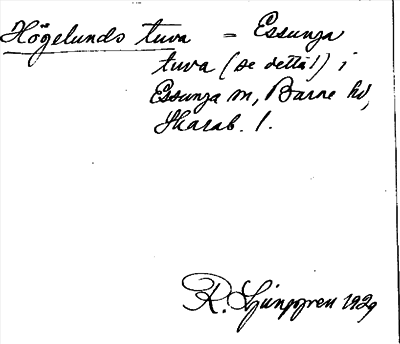 Högelunds tuva = Essunga
tuva (se detta!) i
Essunga sn, Barne hd,
Skarab. l.
R. Ljunggren 1929